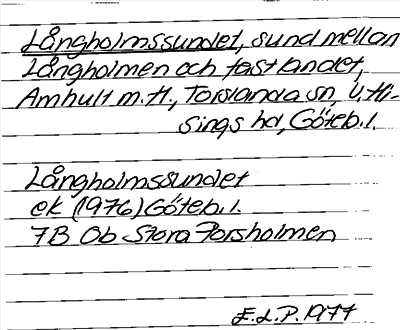 Långholmssundet, sund mellan
Långholmen och fastlandet,
Amhult m.fl., Torslanda sn, V. Hi-
sings hd, Göteb. l.
Långholmssundet
ek (1976) Göteb. l.
7B Ob Stora Porsholmen
E.L.P. 1977